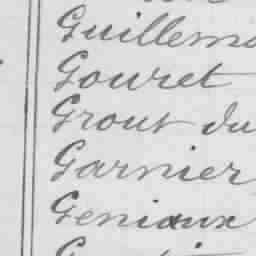 Guillemo
Gouret
Grout du
Garnier
Geniaux